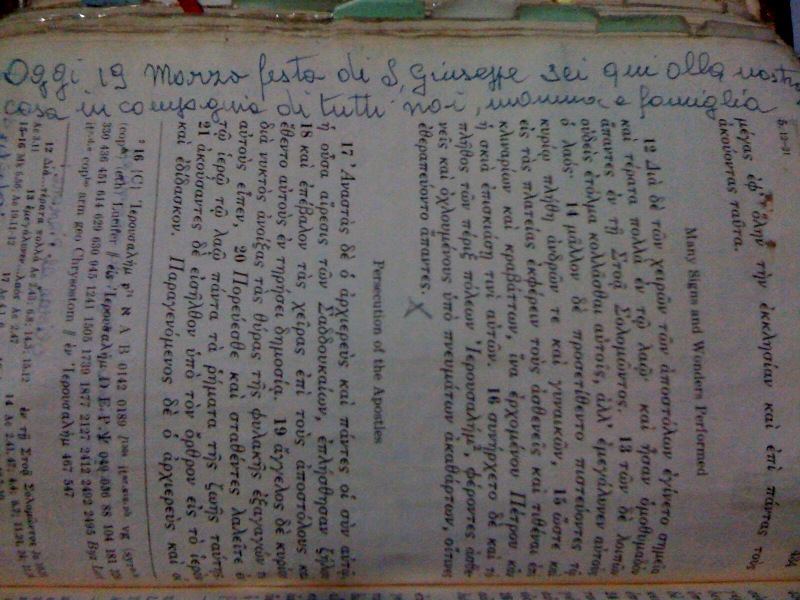 Oggi 19 Marzo festa di S. Giuseppe sei qui alla nostra
casa in compagnia di tutti noi, mamma e famiglia
5.12-21
μέγας ἐφ' ὅλην τὴν ἐκκλησίαν καὶ ἐπὶ πάντας τοὺς
ἀκούοντας ταῦτα.
Many Signs and Wonders Performed
12 Διὰ δὲ τῶν χειρῶν τῶν ἀποστόλων ἐγίνετο σημεῖα
καὶ τέρατα πολλὰ ἐν τῷ λαῷ· καὶ ἦσαν ὁμοθυμαδὸν
ἅπαντες ἐν τῇ Στοᾷ Σολομῶντος. 13 τῶν δὲ λοιπῶν
οὐδεὶς ἐτόλμα κολλᾶσθαι αὐτοῖς, ἀλλ' ἐμεγάλυνεν αὐτοὺς
ὁ λαός· 14 μᾶλλον δὲ προσετίθεντο πιστεύοντες τῷ
κυρίῳ πλήθη ἀνδρῶν τε καὶ γυναικῶν, 15 ὥστε καὶ
εἰς τὰς πλατείας ἐκφέρειν τοὺς ἀσθενεῖς καὶ τιθέναι ἐπὶ
κλιναρίων καὶ κραβάττων, ἵνα ἐρχομένου Πέτρου κἂν
ἡ σκιὰ ἐπισκιάσῃ τινὶ αὐτῶν. 16 συνήρχετο δὲ καὶ τὸ
πλῆθος τῶν πέριξ πόλεων Ἰερουσαλήμ, φέροντες ἀσθε-
νεῖς καὶ ὀχλουμένους ὑπὸ πνευμάτων ἀκαθάρτων, οἵτινες
ἐθεραπεύοντο ἅπαντες.
Persecution of the Apostles
17 Ἀναστὰς δὲ ὁ ἀρχιερεὺς καὶ πάντες οἱ σὺν αὐτῷ,
ἡ οὖσα αἵρεσις τῶν Σαδδουκαίων, ἐπλήσθησαν ζήλου
18 καὶ ἐπέβαλον τὰς χεῖρας ἐπὶ τοὺς ἀποστόλους καὶ
ἔθεντο αὐτοὺς ἐν τηρήσει δημοσίᾳ. 19 ἄγγελος δὲ κυρίου
διὰ νυκτὸς ἀνοίξας τὰς θύρας τῆς φυλακῆς ἐξαγαγών τε
αὐτοὺς εἶπεν, 20 Πορεύεσθε καὶ σταθέντες λαλεῖτε ἐν
τῷ ἱερῷ τῷ λαῷ πάντα τὰ ῥήματα τῆς ζωῆς ταύτης.
21 ἀκούσαντες δὲ εἰσῆλθον ὑπὸ τὸν ὄρθρον εἰς τὸ ἱερὸν
καὶ ἐδίδασκον. Παραγενόμενος δὲ ὁ ἀρχιερεὺς καὶ οἱ
16 {C} Ἰερουσαλήμ א A B 0142 0189 vg
Lucifer ἐν Ἰερουσαλήμ D E P Ψ 049 056 88 104 181
330 436 451 614 629 630 945 1241 1505 1739 1877 2127 2412 2492 2495 Byz
arm geo Chrysostom ἐν Ἰερουσαλήμ
12 τέρατα πολλά Ac 2.43; 6.8; 14.3; 15.12 ἐν τῇ Στοᾷ Σολομῶντος
15-16 Mk 6.56; Ac 19.11-12